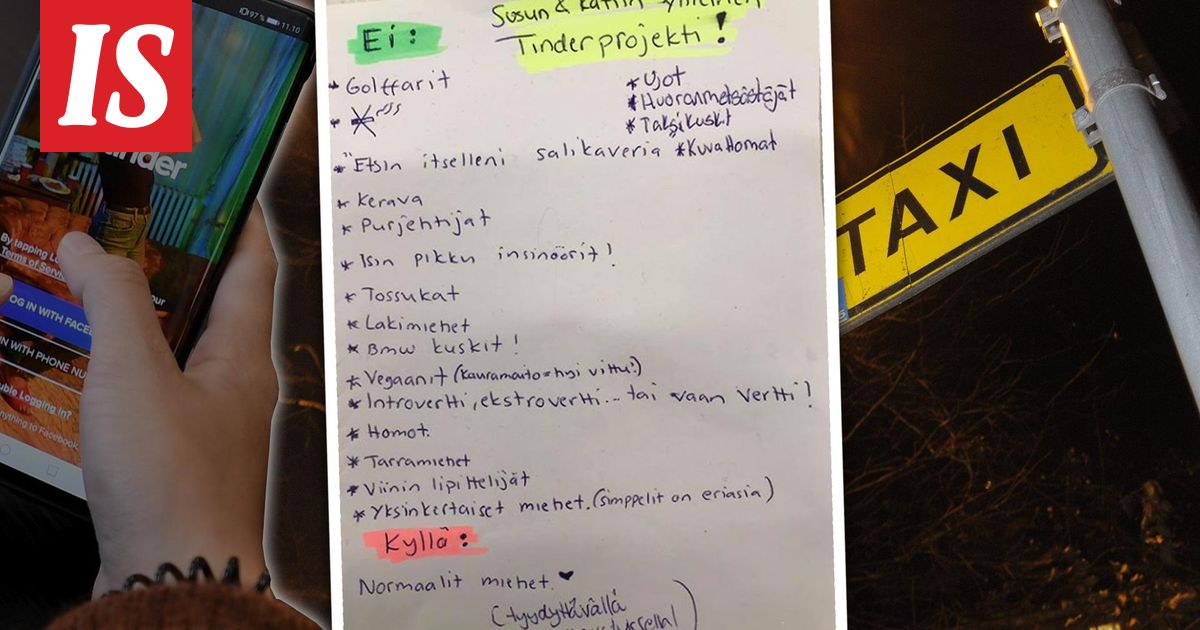 IS
97 % 11.10
tinder
By tapping Lo
Terms of Servi
our
OG IN WITH FACEB
IN WITH PHONE NU
uble Logging in?
nything to Facebook
Susun & Katrin yhteinen
Tinderprojekti!
Ei:
* Golffarit
*
* "Etsin itselleni salikaveria
* Kerava
* Purjehtijat
* Isin pikku insinöörit!
* Tossukat
* Lakimiehet
* Bmw kuskit!
* Vegaanit (kauramaito = hyi vittu!)
* Introvertti, ekstrovertti... tai vaan vertti!
* Homot.
* Tarramiehet
* Viinin lipittelijät
* Yksinkertaiset miehet. (simppelit on eriasia)
* Ujot
* Huoranmetsästäjät
* Taksikuskit
* Kuvattomat
Kyllä:
Normaalit miehet. ♥
(tyydyttävällä
TAXI